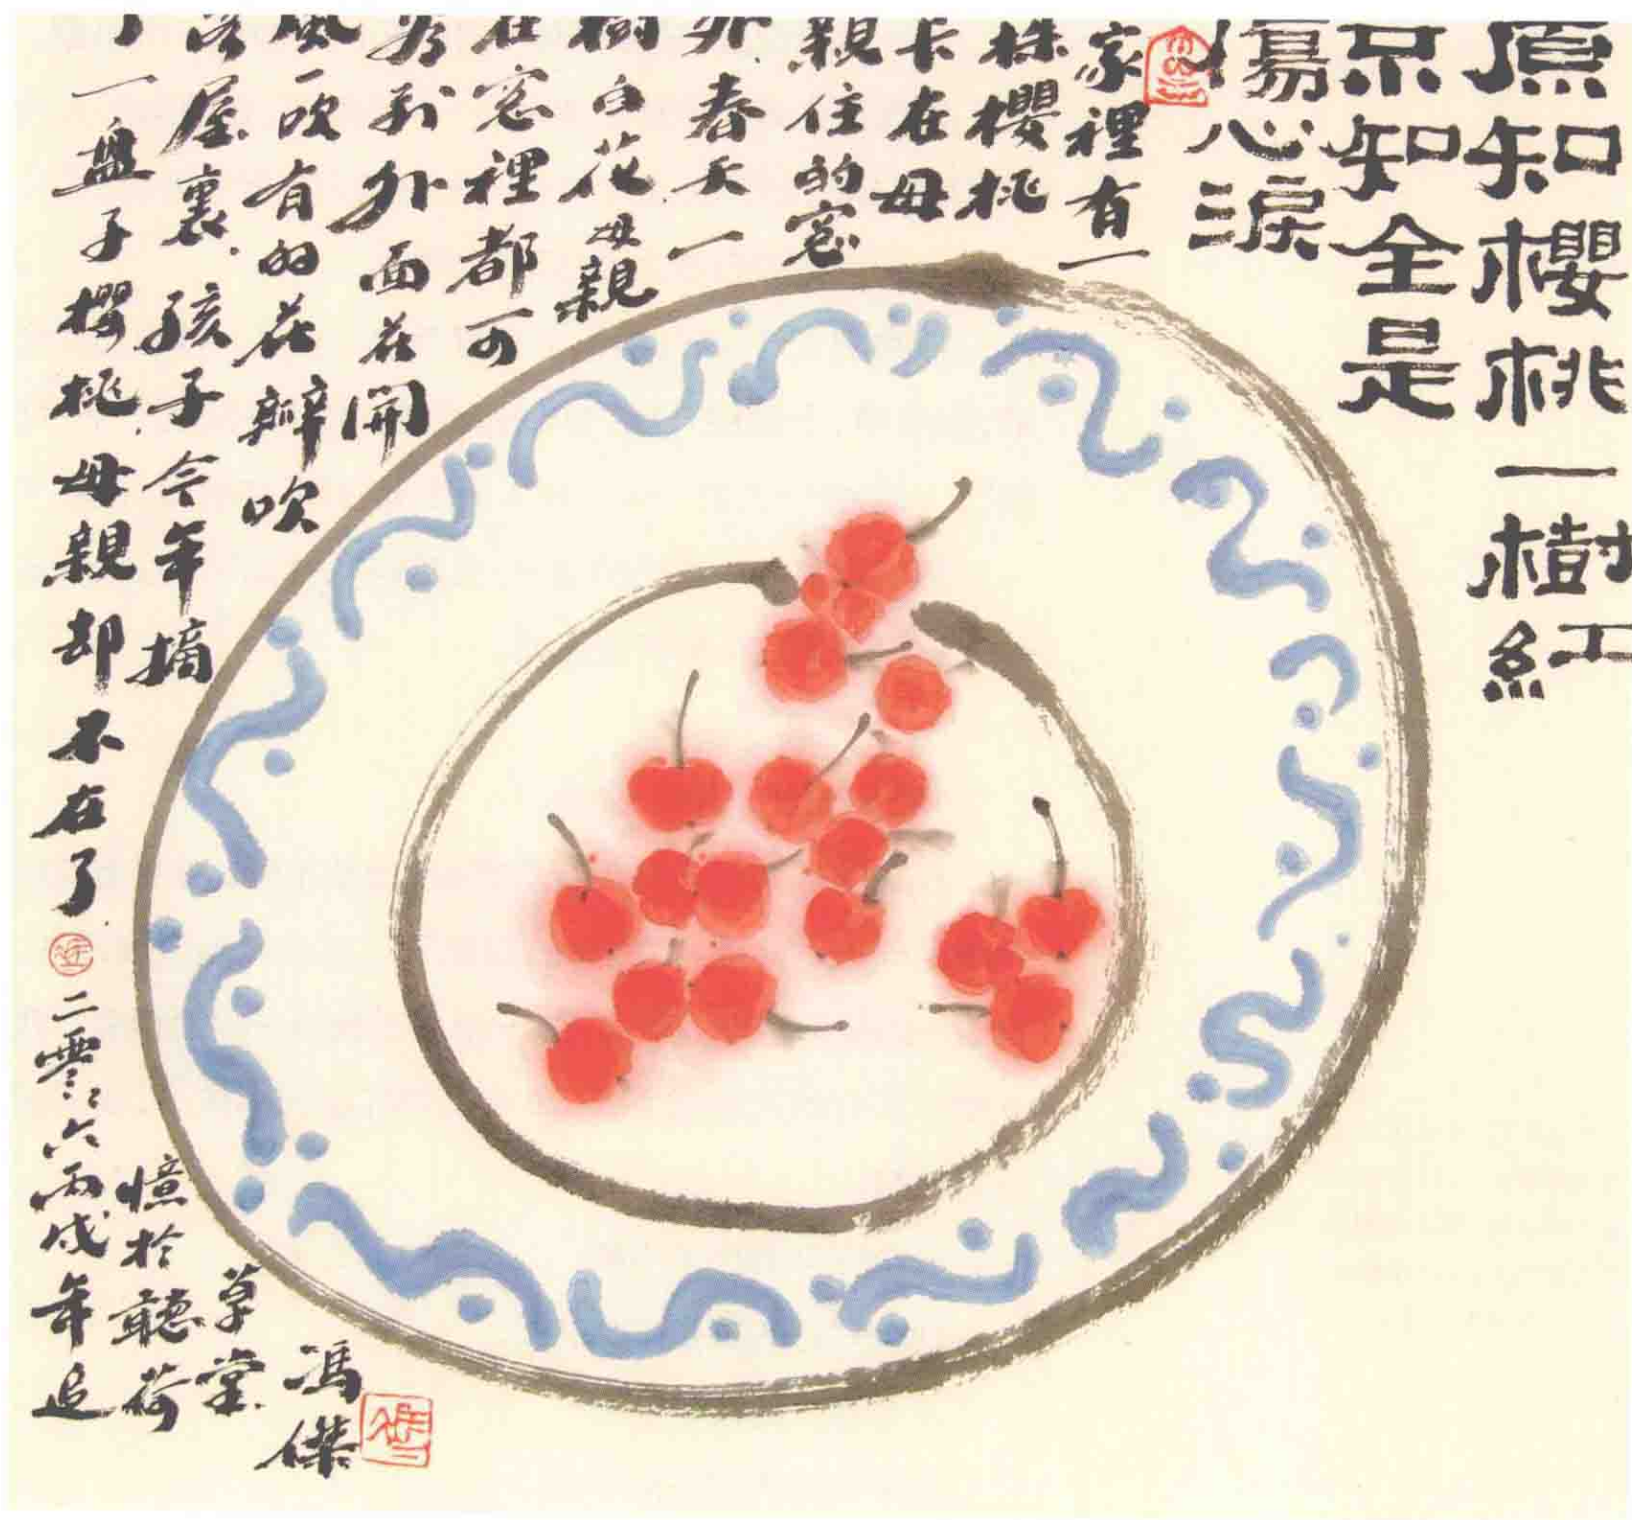 原知櫻桃一樹紅
京知全是
傷心淚
家裡有一
株櫻桃
卡在母
親住的窓
外春天一
樹白花母親
在窓裡都可
看到外面花開
風一吹有的花瓣吹
落屋裏孩子今年摘
了一盤子櫻桃母親却不在了
二零々六丙戌年追
憶於聽荷
草堂
馮傑